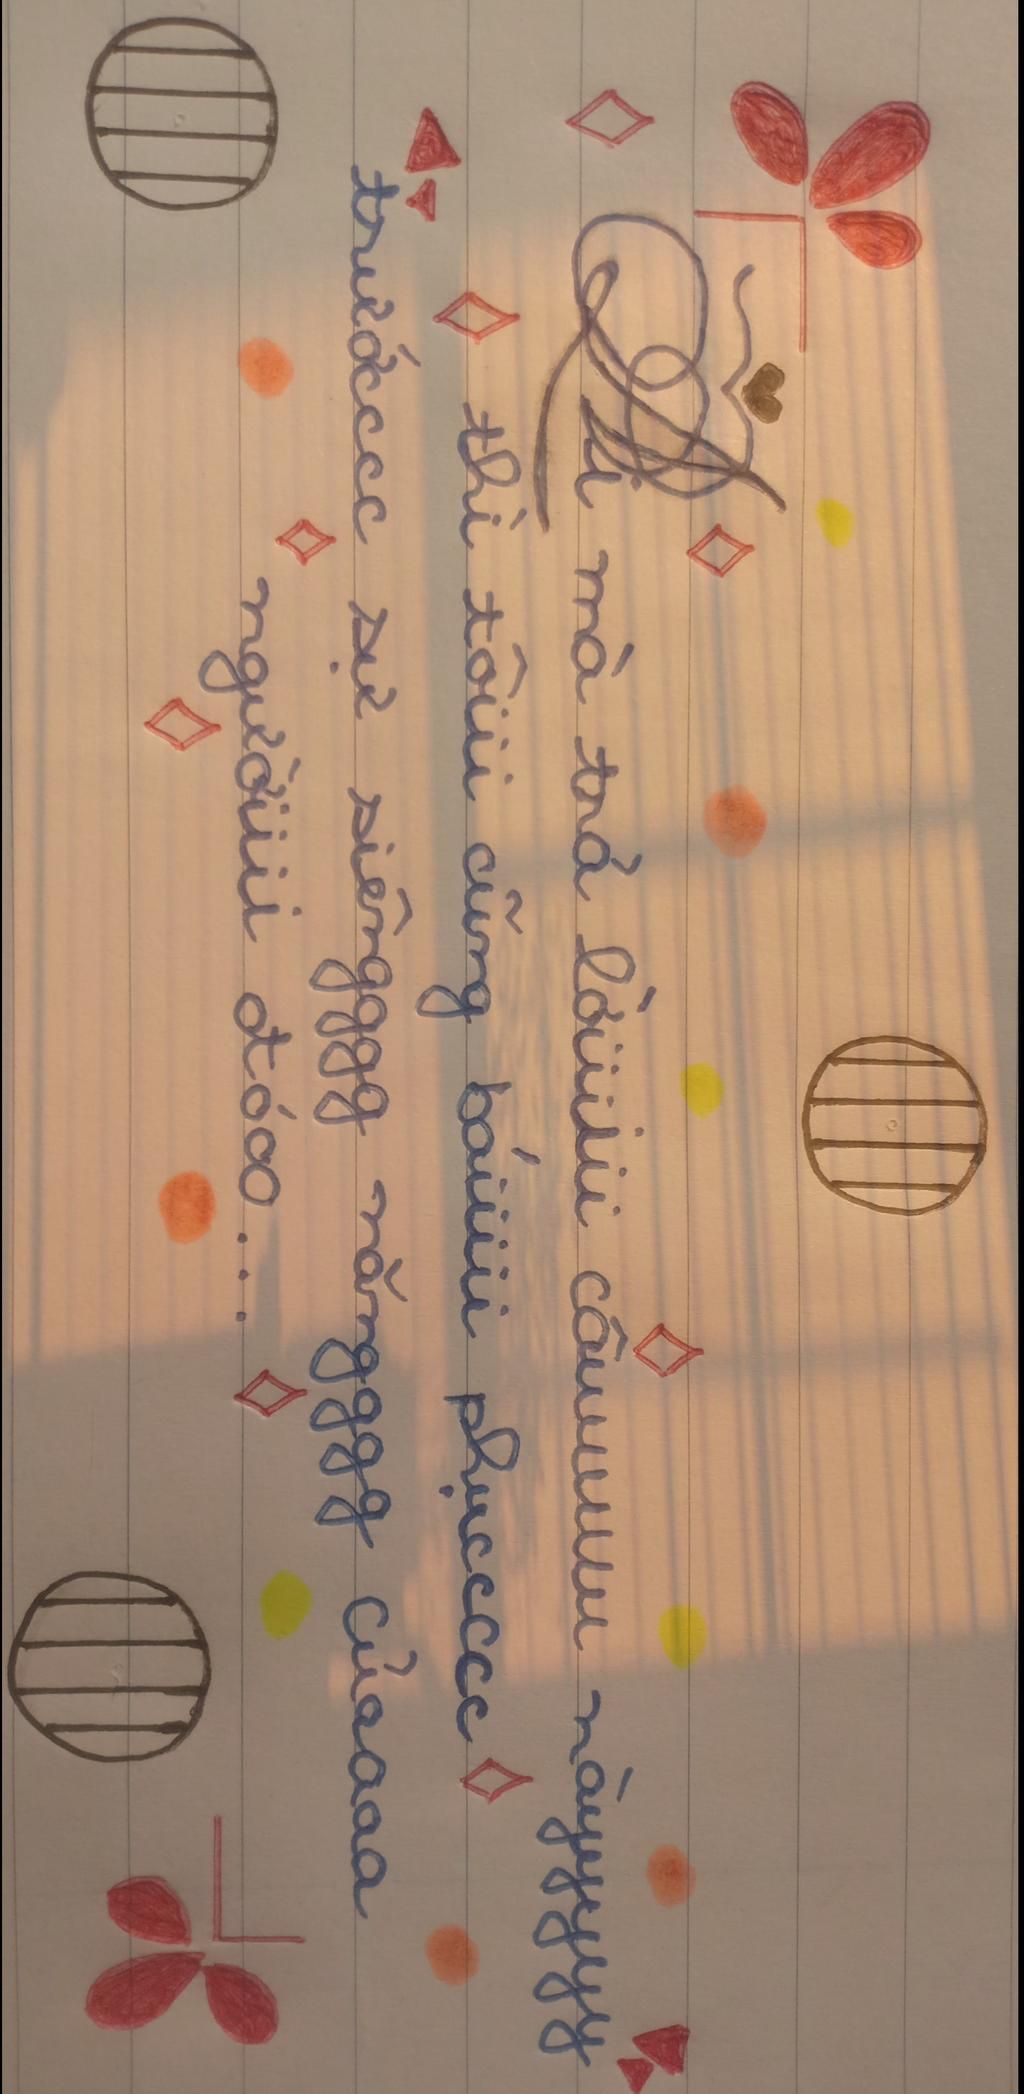 Ai mà trả lờiiii câuuuuu nàyyyyy
thì tôiii cũng báiiii phụccccc
trướcccc sự siêngggg nănggggg củaaaa
ngườiiii đóoo...